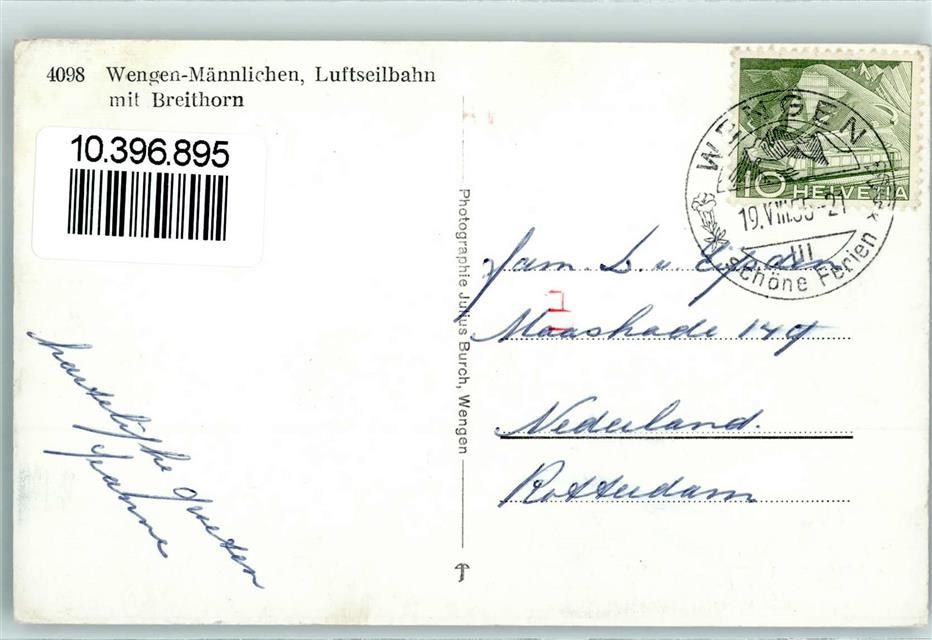 4098 Wengen-Männlichen, Luftseilbahn
mit Breithorn
10.396.895
10 HELVETIA
WENGEN
19.VIII.55-21
III
schöne Ferien
Photographie Julius Burch, Wengen
Fam. L. v.
Maashade 149
Nederland.
Rotterdam
hartelijke groeten